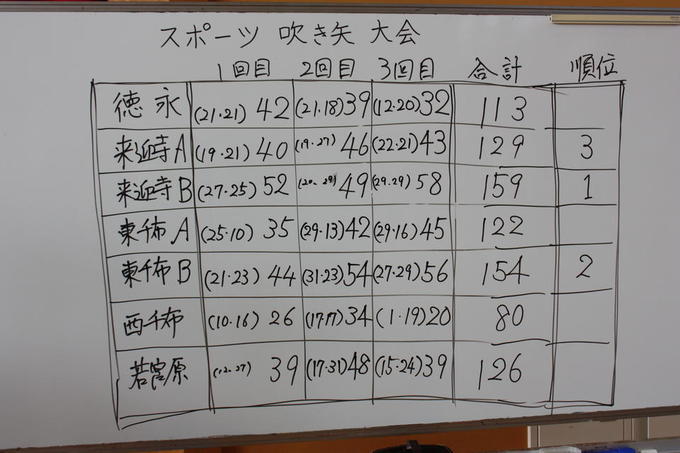 スポーツ 吹き矢 大会
1回目 2回目 3回目 合計 順位
徳永 (21・21) 42 (21・18) 39 (12・20) 32 113
来迎寺A (19・21) 40 (19・27) 46 (22・21) 43 129 3
来迎寺B (27・25) 52 (20・29) 49 (29・29) 58 159 1
東千布A (25・10) 35 (29・13) 42 (29・16) 45 122
東千布B (21・23) 44 (31・23) 54 (27・29) 56 154 2
西千布 (10・16) 26 (17・17) 34 (1・19) 20 80
若宮原 (12・27) 39 (17・31) 48 (15・24) 39 126